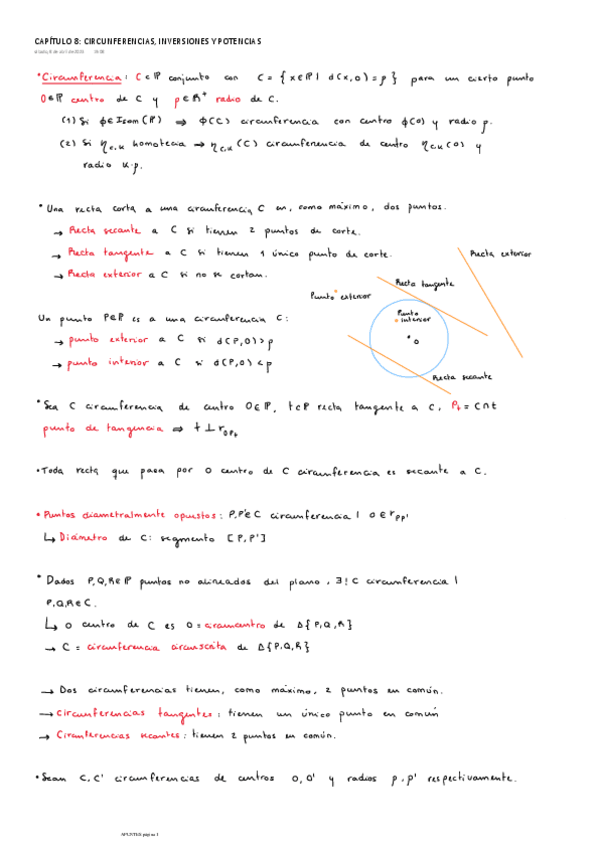 CAPÍTULO 8: CIRCUNFERENCIAS, INVERSIONES Y POTENCIAS
• Circunferencia: C ⊂ ℙ conjunto con C = { x ∈ ℙ | d(x,o) = ρ } para un cierto punto
O ∈ ℙ centro de C y ρ ∈ ℝ⁺ radio de C.
(1) Si ϕ ∈ Isom(ℙ) ⇒ ϕ(C) circunferencia con centro ϕ(o) y radio ρ.
(2) Si η_{c,k} homotecia → η_{c,k}(C) circunferencia de centro η_{c,k}(o) y
radio k·ρ.
• Una recta corta a una circunferencia C en, como máximo, dos puntos.
→ Recta secante a C si tienen 2 puntos de corte.
→ Recta tangente a C si tienen 1 único punto de corte.
→ Recta exterior a C si no se cortan.
Recta exterior
Recta tangente
Punto exterior
Punto
interior
o
Recta secante
Un punto P∈ℙ es a una circunferencia C:
→ punto exterior a C si d(P,O) > ρ
→ punto interior a C si d(P,O) < ρ
• Sea C circunferencia de centro O∈ℙ, t⊂ℙ recta tangente a C, P_t = C∩t
punto de tangencia ⇒ t ⊥ r_{OP_t}
• Toda recta que pasa por O centro de C circunferencia es secante a C.
• Puntos diametralmente opuestos: P,P'∈C circunferencia | O ∈ r_{PP'}
↳ Diámetro de C: segmento [P,P']
• Dados P,Q,R∈ℙ puntos no alineados del plano, ∃! C circunferencia |
P,Q,R∈C.
↳ O centro de C es O = circuncentro de Δ{P,Q,R}
→ C = circunferencia circunscrita de Δ{P,Q,R}
→ Dos circunferencias tienen, como máximo, 2 puntos en común.
→ Circunferencias tangentes: tienen un único punto en común
→ Circunferencias secantes: tienen 2 puntos en común.
• Sean C,C' circunferencias de centros O,O' y radios ρ,ρ' respectivamente.
APUNTES página 1